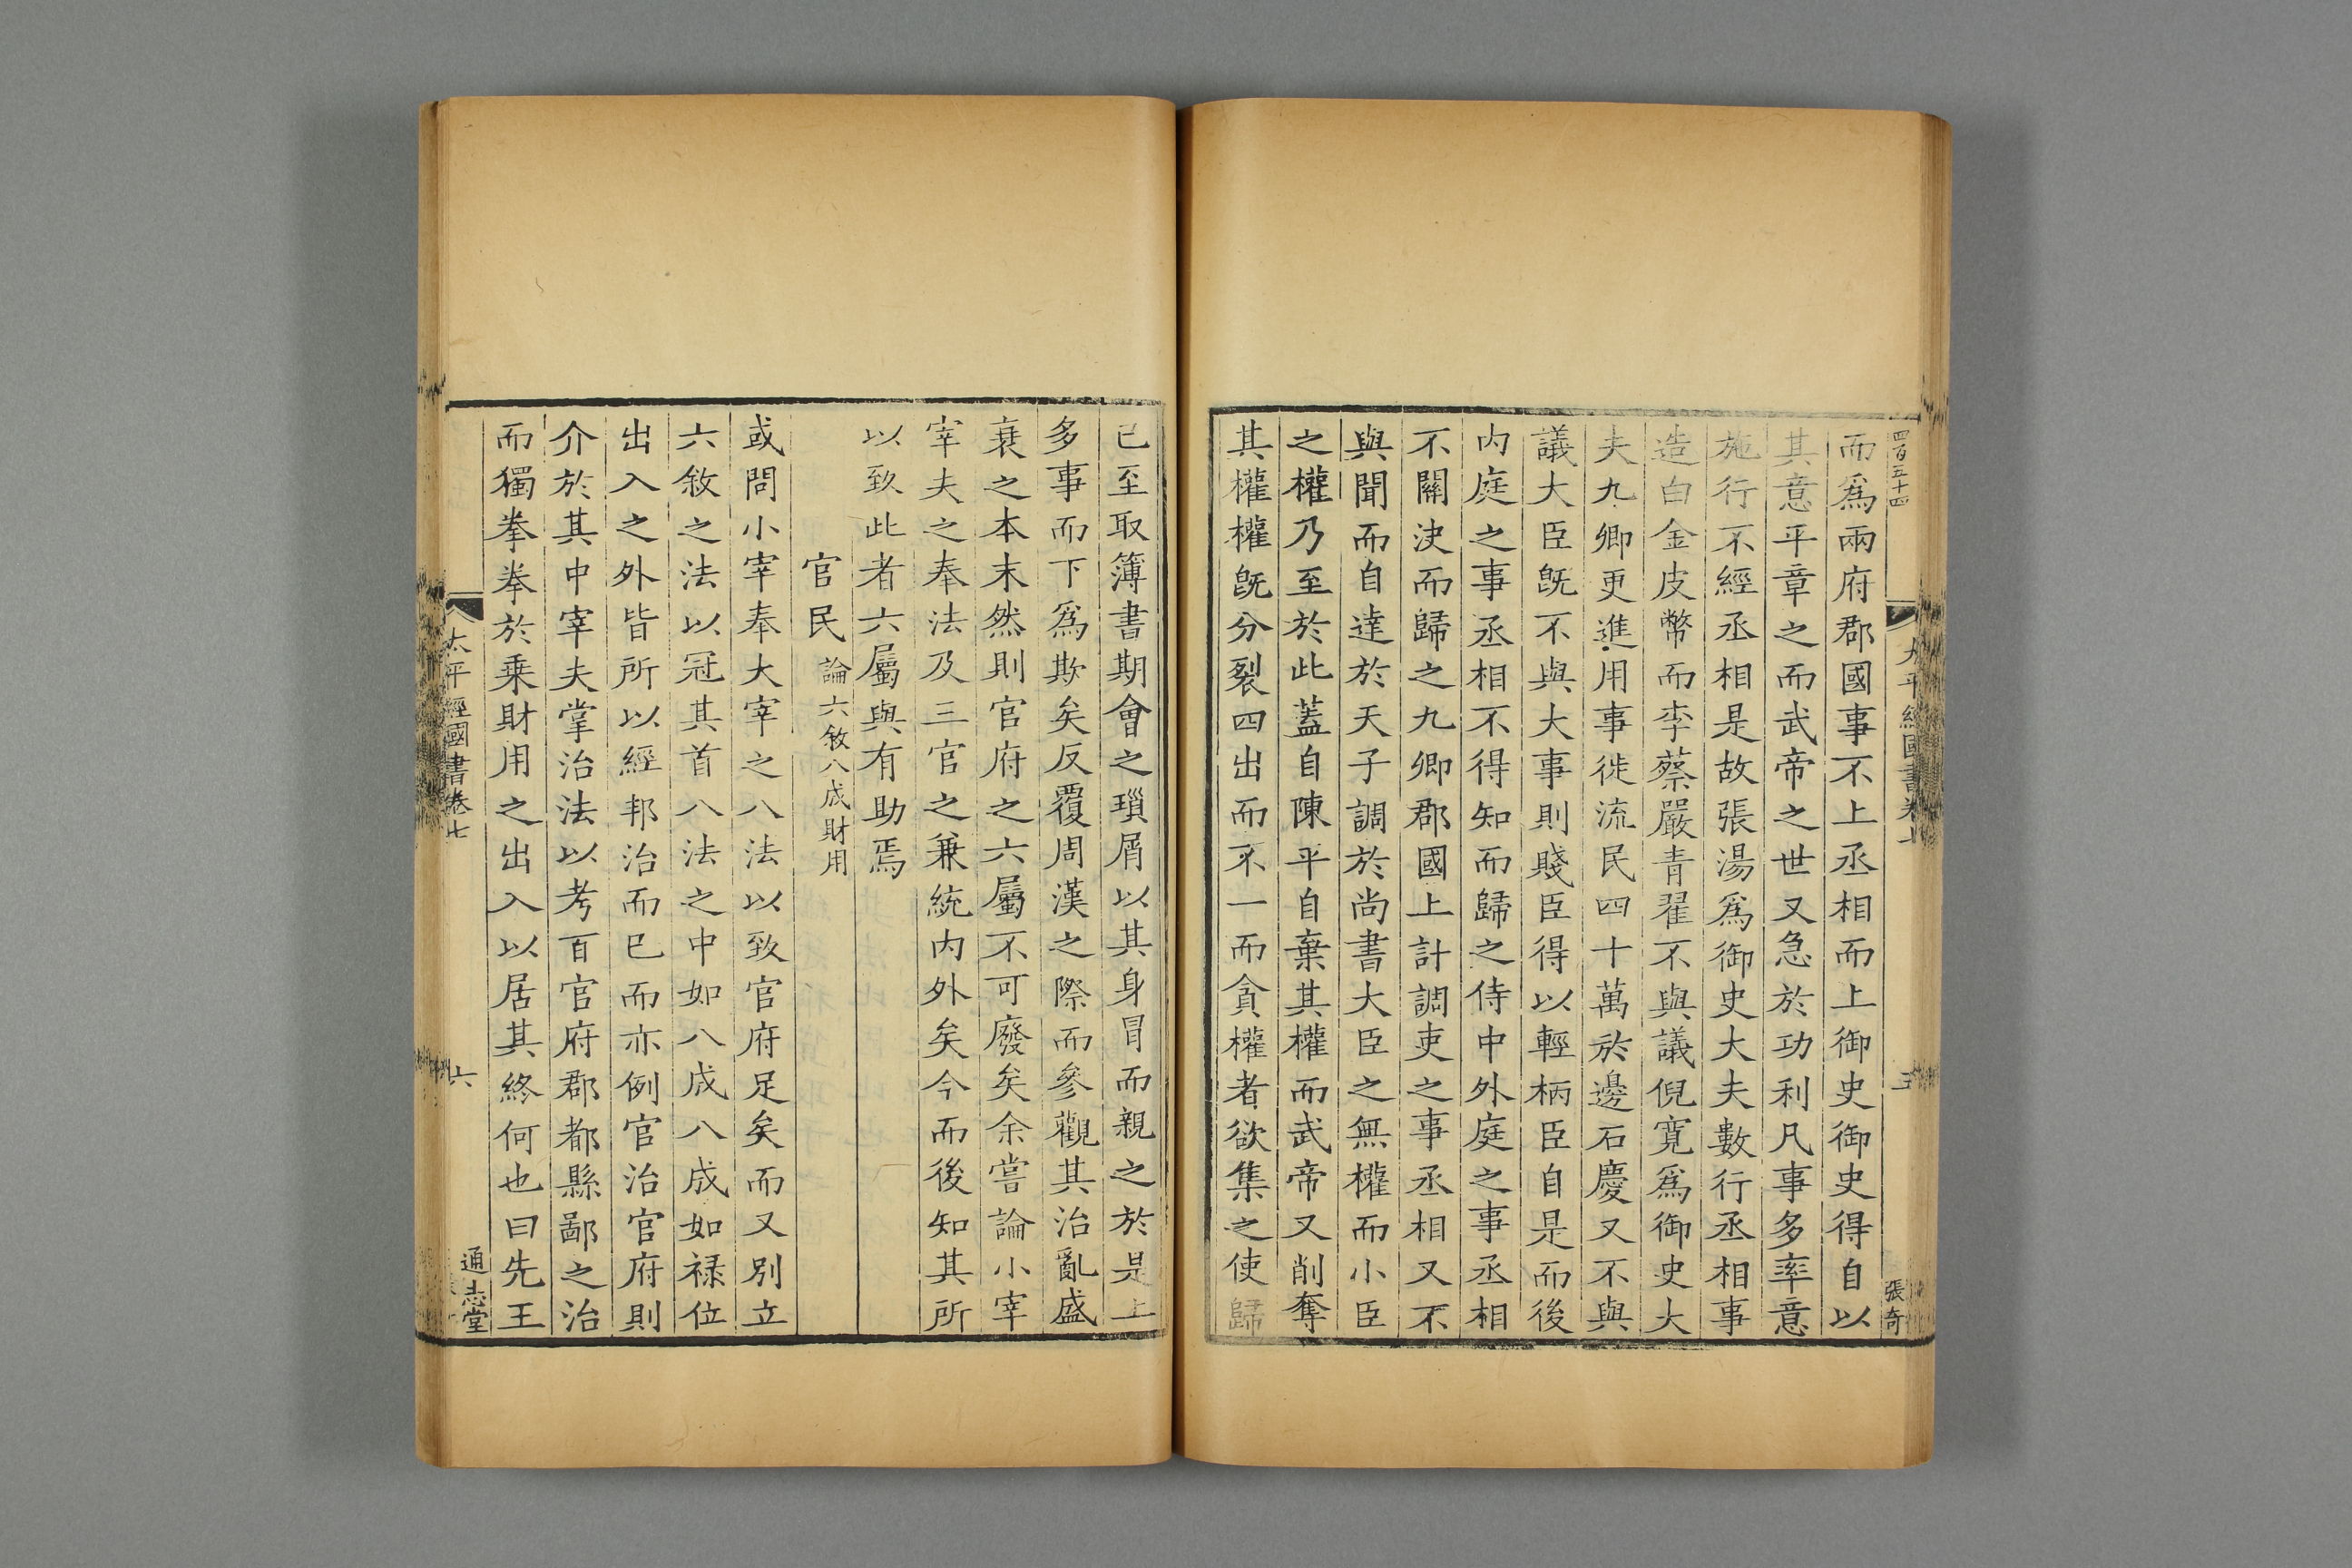 四百五十四
太平經國書卷七
張奇
而爲兩府郡國事不上丞相而上御史御史得自以
其意平章之而武帝之世又急於功利凡事多率意
施行不經丞相是故張湯爲御史大夫數行丞相事
造白金皮幣而李蔡嚴青翟不與議倪寬爲御史大
夫九卿更進用事徙流民四十萬於邊石慶又不與
議大臣旣不與大事則賤臣得以輕柄臣自是而後
内庭之事丞相不得知而歸之侍中外庭之事丞相
不關決而歸之九卿郡國上計調吏之事丞相又不
與聞而自達於天子調於尚書大臣之無權而小臣
之權乃至於此蓋自陳平自棄其權而武帝又削奪
其權權旣分裂四出而不一而貪權者欲集之使歸
已至取簿書期會之瑣屑以其身冒而親之於是上
多事而下爲欺矣反覆周漢之際而參觀其治亂盛
衰之本末然則官府之六屬不可廢矣余嘗論小宰
宰夫之奉法及三官之兼統内外矣今而後知其所
以致此者六屬與有助焉
官民 論六敘八成財用
或問小宰奉大宰之八法以致官府足矣而又別立
六敘之法以冠其首八法之中如八成八成如祿位
出入之外皆所以經邦治而已而亦例官治官府則
介於其中宰夫掌治法以考百官府郡都縣鄙之治
而獨拳拳於乗財用之出入以居其終何也曰先王
太平經國書卷七
六
通志堂